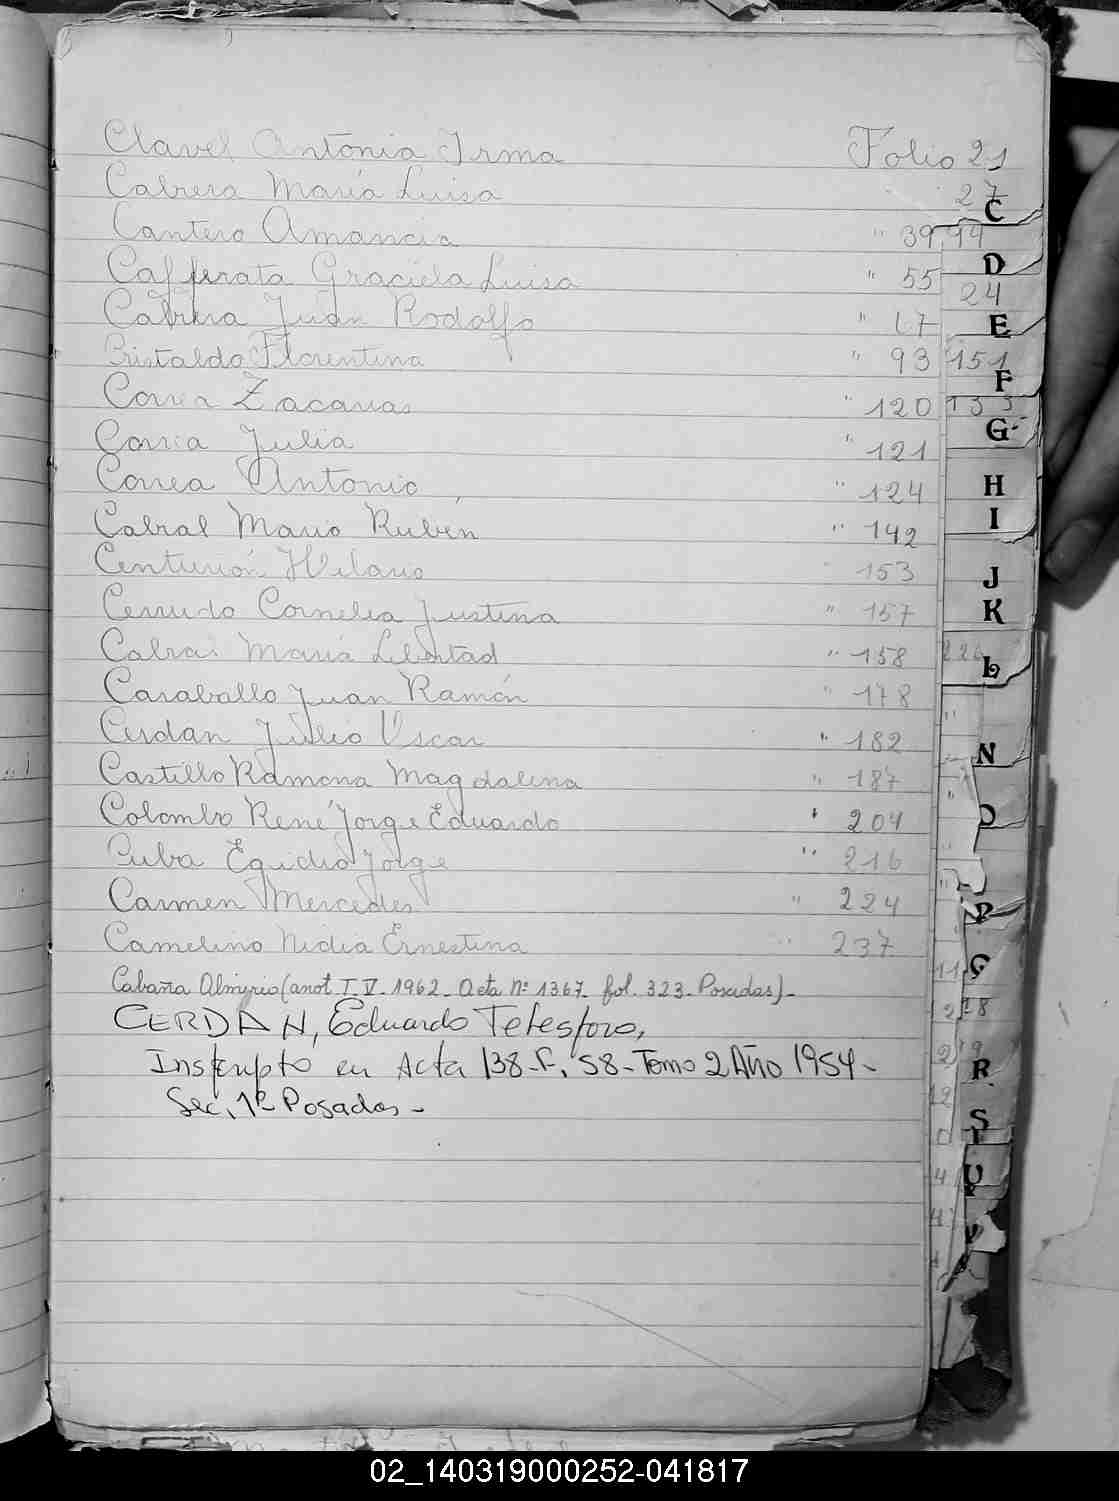 Clavel Antonia Irma Folio 21
Cabrera María Luisa " 27
Cantero Amancia " 39 44
Cafferata Graciela Luisa " 55
24
Cabrera Juan Rodolfo " 67
Cristaldo Florentina " 93 151
Correa Zacarias " 120 133
Correa Julia " 121
Correa Antonio " 124
Cabral Mario Rubén " 142
Centurión Hilario " 153
Cerrudo Cornelia Justina " 157
Cabral María Libertad " 158
Caraballo Juan Ramón " 178
Cerdan Julio Oscar " 182
Castillo Ramona Magdalena " 187
Colombo René Jorge Eduardo " 204
Cuba Egidio Jorge " 216
Carmen Mercedes " 224
Camelino Nidia Ernestina " 237
Cabaña Almirio (anot T. V. 1962. Acta Nº 1367. fol. 323. Posadas)_
CERDAN, Eduardo Telesforo,
Inscripto en Acta 138-F. 58-Tomo 2 Año 1954-
Sec. 1ª Posadas-
C
D
E
F
G
H
I
J
K
L
N
O
P
R
S
T
U
V
02_140319000252-041817